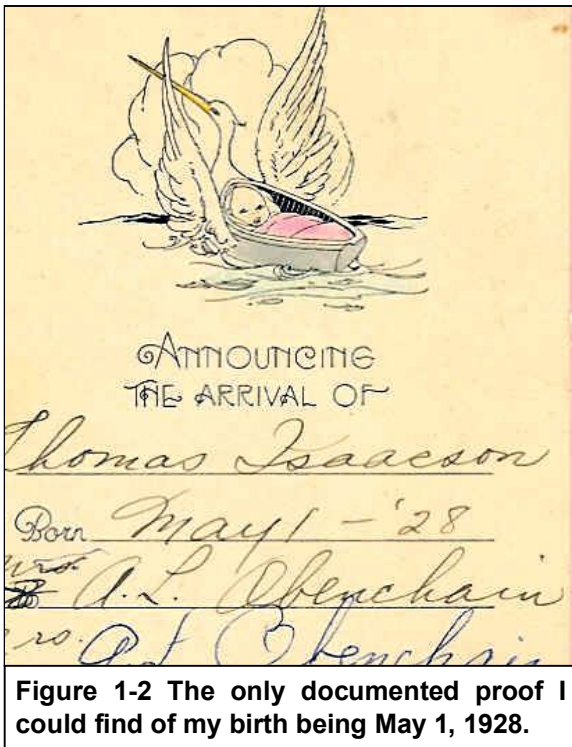 ANNOUNCING
THE ARRIVAL OF
Thomas Isaacson
Born May 1 - '28
Mrs.
A.L. Obenchain
rs. A.L. Obenchain
Figure 1-2 The only documented proof I
could find of my birth being May 1, 1928.